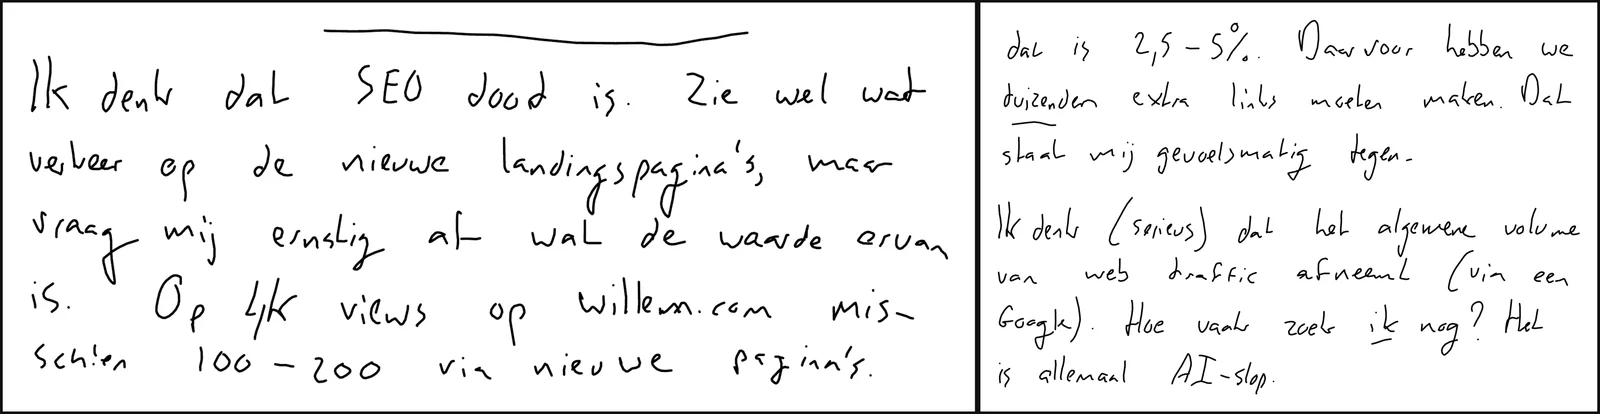 Ik denk dat SEO dood is. Zie wel wat
verkeer op de nieuwe landingspagina's, maar
vraag mij ernstig af wat de waarde ervan
is. Op 4k views op willem.com mis-
schien 100 - 200 via nieuwe pagina's.
dat is 2,5 - 5%. Daarvoor hebben we
duizenden extra links moeten maken. Dat
staat mij gevoelsmatig tegen.
Ik denk (serieus) dat het algemene volume
van web traffic afneemt (via een
Google). Hoe vaak zoek ik nog? Het
is allemaal AI-slop.